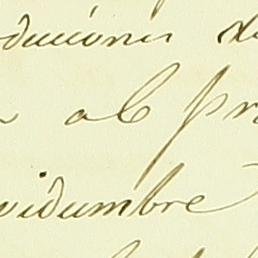 ducciones de
al pr
vidumbre